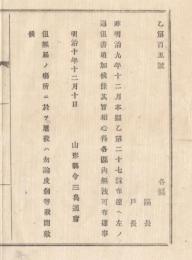 乙第百五號
各區
區長
戸長
昨明治九年十二月本縣乙第二十七號布達ヘ左ノ
通但書追加候條其旨相心得各區内無洩可布達事
明治十年十二月十日
山形縣令三島通庸
但無易ノ場所ニ於テ屠殺ハ勿論皮剝等致間敷
候